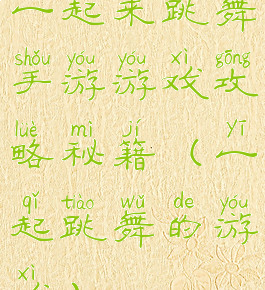 一起来跳舞
shǒu yóu yóu xì gōng
手游游戏攻
lüè mì jí yī
略秘籍(一
qǐ tiào wǔ de yóu
起跳舞的游
xì
戏)